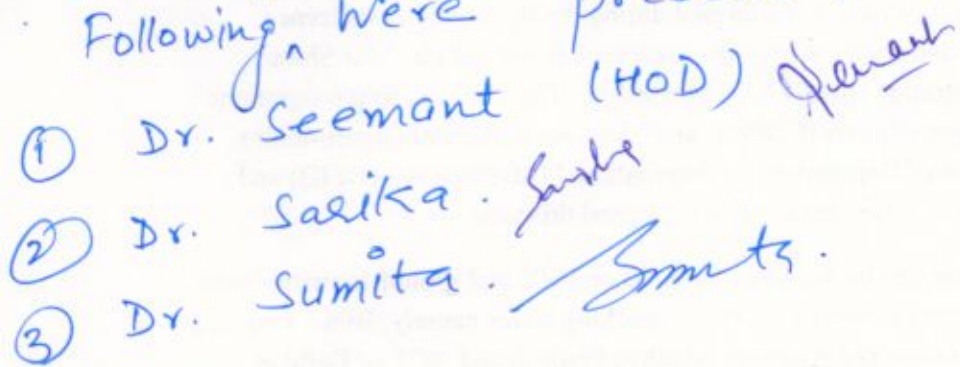 Following ^ Were
① Dr. Seemant (HOD) Seemant
② Dr. Sarika.
③ Dr. Sumita. Sumita.